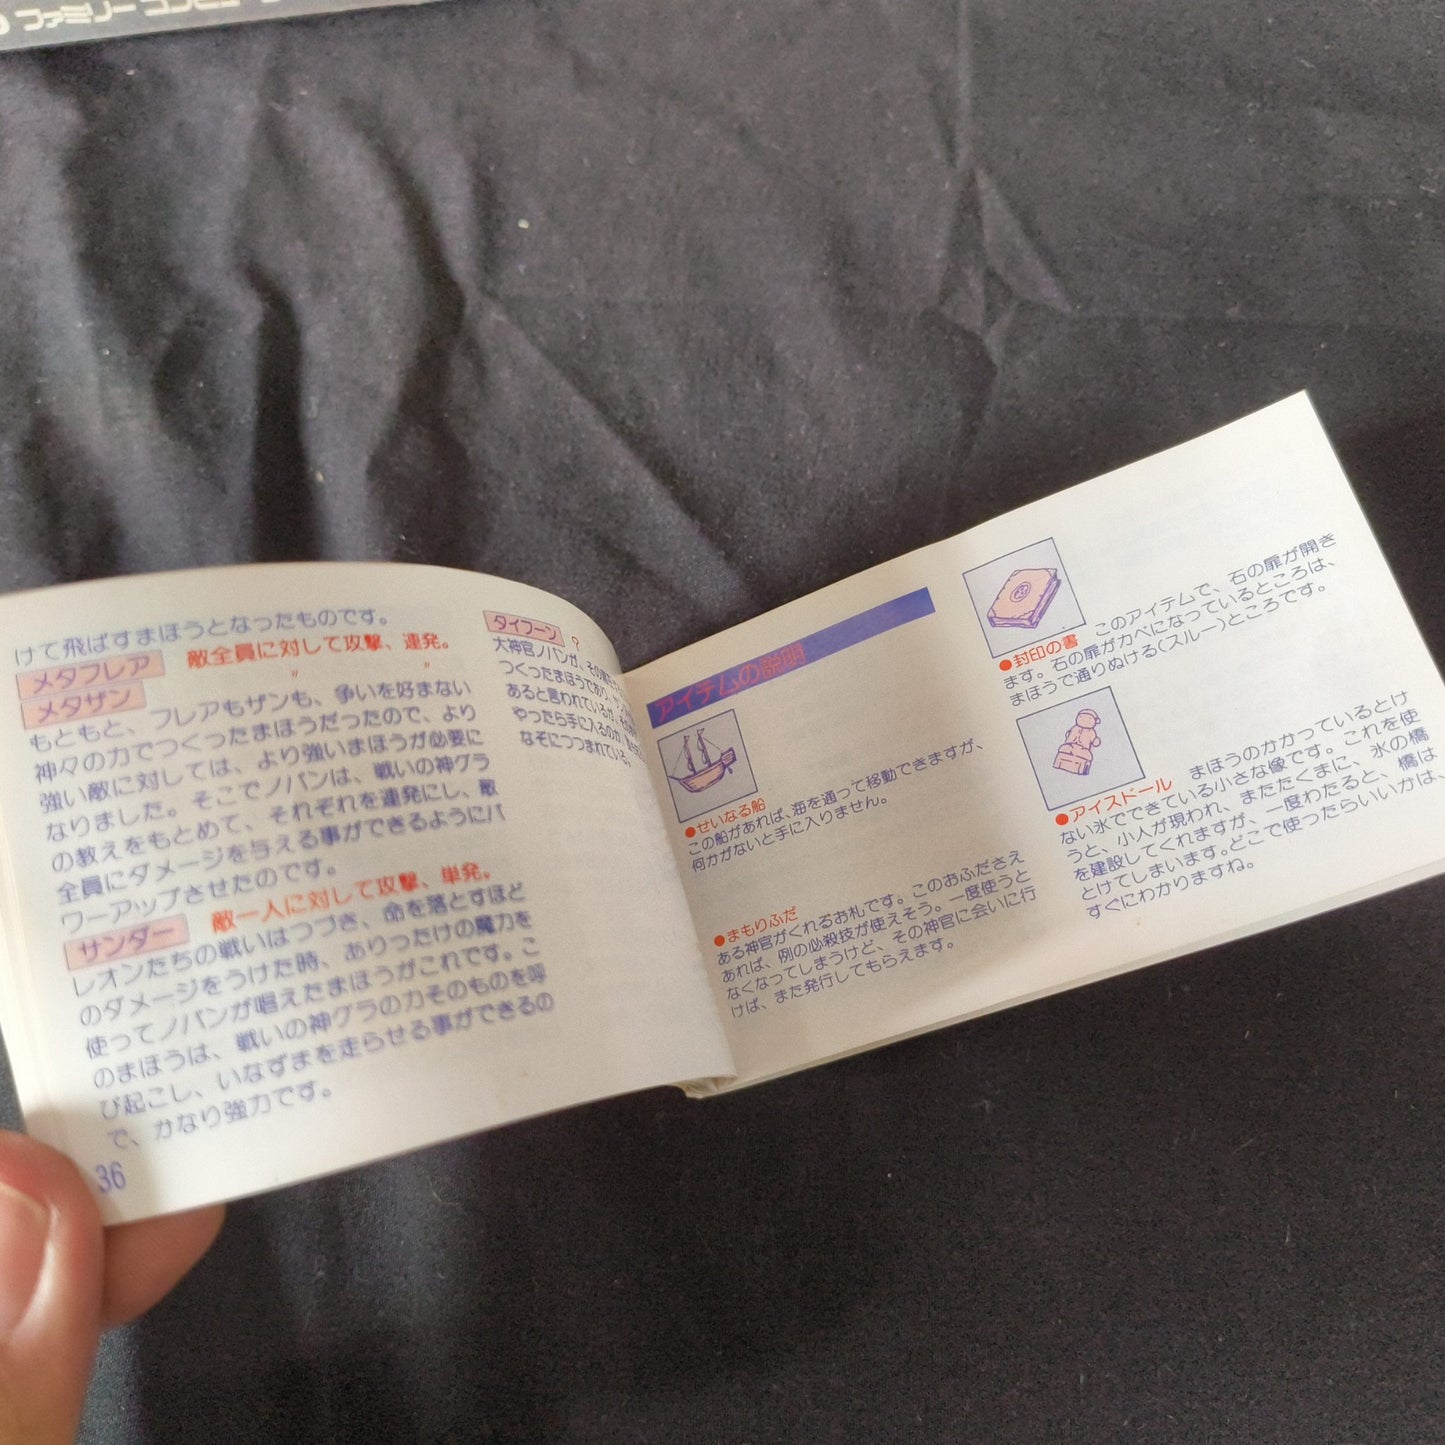 ファミリーコンピュ
けて飛ばすまほうとなったものです。
メタフレア 敵全員に対して攻撃、連発。
メタザン 〃 〃
もともと、フレアもザンも、争いを好まない
神々の力でつくったまほうだったので、より
強い敵に対しては、より強いまほうが必要に
なりました。そこでノバンは、戦いの神グラ
の教えをもとめて、それぞれを連発にし、敵
全員にダメージを与える事ができるようにパ
ワーアップさせたのです。
サンダー 敵一人に対して攻撃、単発。
レオンたちの戦いはつづき、命を落とすほど
のダメージをうけた時、ありったけの魔力を
使ってノバンが唱えたまほうがこれです。こ
のまほうは、戦いの神グラの力そのものを呼
び起こし、いなずまを走らせる事ができるの
で、かなり強力です。
36
タイフーン ?
大神官ノバンが、その
つくったまほうであり、
あると言われているが、
やったら手に入るのか、
なぞにつつまれている。
アイテムの説明
●せいなる船
この船があれば、海を通って移動できますが、
何かがないと手に入りません。
●まもりふだ
ある神官がくれるお札です。このおふださえ
あれば、例の必殺技が使えそう。一度使うと
なくなってしまうけど、その神官に会いに行
けば、また発行してもらえます。
●封印の書 このアイテムで、石の扉が開き
ます。石の扉がカベになっているところは、
まほうで通りぬける(スルー)ところです。
●アイスドール まほうのかかっているとけ
ない氷でできている小さな像です。これを使
うと、小人が現われ、またたくまに、氷の橋
を建設してくれますが、一度わたると、橋は
とけてしまいます。どこで使ったらいいかは、
すぐにわかりますね。